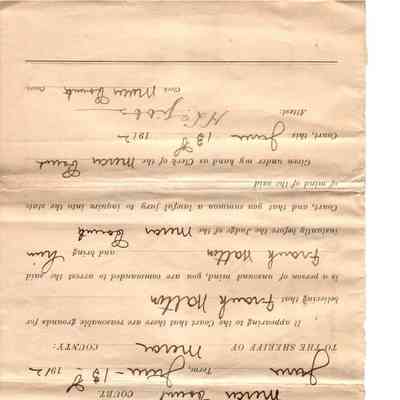 Mercer County COURT
June Term, June - 13th 1912
TO THE SHERIFF OF Mercer COUNTY:
It appearing to the Court that there are reasonable grounds for
believing that Frank Walton
is a person of unsound mind, you are commanded to arrest the said
Frank Walton and bring him
instantly before the Judge of the Mercer County
Court, and that you summon a lawful jury to inquire into the state
of mind of the said
Given under my hand as Clerk of the Mercer County
Court, this June 13th 1912
Attest:
Clerk Mercer County Court